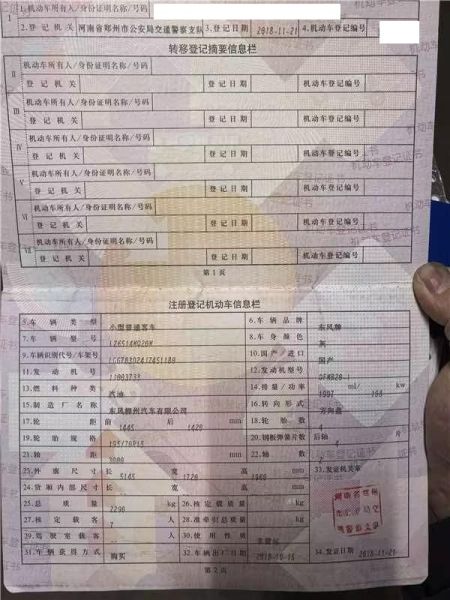 1.机动车所有人/身份证明名称/号码
2.登记机关 河南省郑州市公安局交通警察支队 3.登记日期 2018-11-21 4.机动车登记编号
转移登记摘要信息栏
Ⅱ 机动车所有人/身份证明名称/号码
登记机关 登记日期 机动车登记编号
Ⅲ 机动车所有人/身份证明名称/号码
登记机关 登记日期 机动车登记编号
Ⅳ 机动车所有人/身份证明名称/号码
登记机关 登记日期 机动车登记编号
Ⅴ 机动车所有人/身份证明名称/号码
登记机关 登记日期 机动车登记编号
Ⅵ 机动车所有人/身份证明名称/号码
登记机关 登记日期 机动车登记编号
Ⅶ 机动车所有人/身份证明名称/号码
登记机关 登记日期 机动车登记编号
第1页
注册登记机动车信息栏
5.车辆类型 小型普通客车 6.车辆品牌 东风牌
7.车辆型号 8.车身颜色 灰
9.车辆识别代号/车架号 10.国产/进口 国产
11.发动机号 12.发动机型号
13.燃料种类 汽油 14.排量/功率 1997 ml/ kw
15.制造厂名称 东风柳州汽车有限公司 16.转向形式 方向盘
17.轮距 前 1445 后 1428 mm 18.轮胎数 4
19.轮胎规格 195/70R15 20.钢板弹簧片数 后轴 片
21.轴距 3000 mm 22.轴数 2
23.外廓尺寸 长 5145 宽 1720 高 1960 mm 33.发证机关章
24.货厢内部尺寸 长 宽 高 mm
25.总质量 2290 kg 26.核定载质量 kg
27.核定载客 7 人 28.准牵引总质量 kg
29.驾驶室载客 人 30.使用性质 非营运
31.车辆获得方式 购买 32.车辆出厂日期 2018-10-16 34.发证日期 2018-11-21
第2页